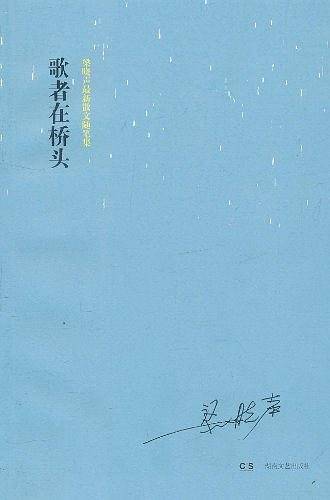 歌者在桥头
梁晓声最新散文随笔集
梁晓声
CS 湖南文艺出版社